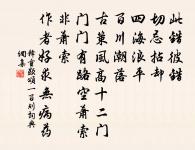 此錯彼錯
切忌拈却
四海浪平
百川潮落
古策風高十二門
門門有路空蕭索
非蕭索
作者好求無病藥
釋重顯頌一百則詞典
網集